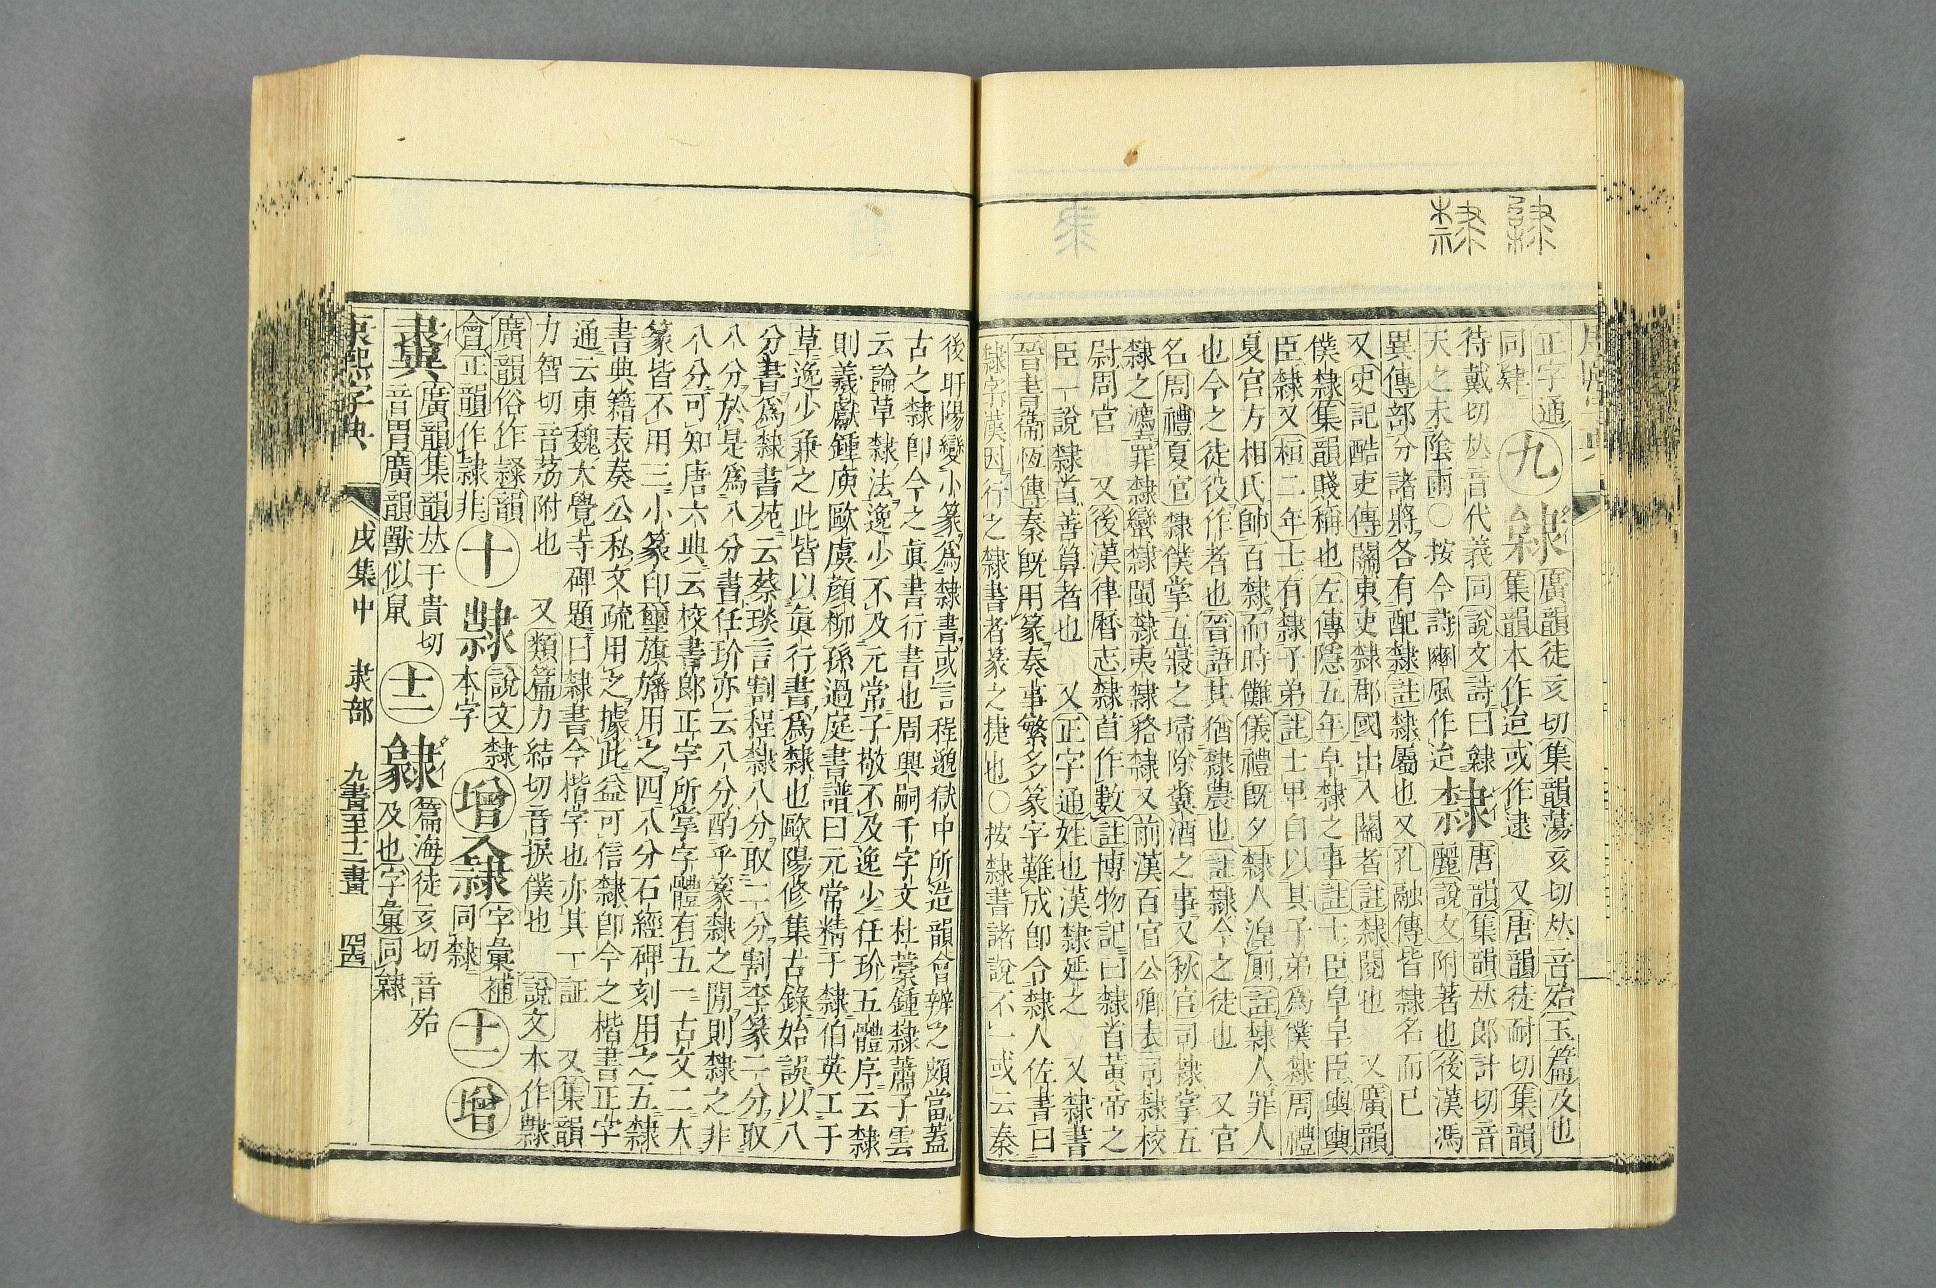 隸
正字通 廣韻徒亥切集韻蕩亥切𠀤音殆玉篇及也
同肄 九 集韻本作迨或作逮 又唐韻徒耐切集韻
待戴切𠀤音代義同說文詩曰 唐韻集韻𠀤郎計切音
天之未陰雨○按今詩豳風作迨 隸 麗說文附著也後漢馮
異傳部分諸將各有配隸註隸屬也又孔融傳皆隸名而已
又史記酷吏傳關東吏隸郡國出入關者註隸閱也 又廣韻
僕隸集韻賤稱也左傳隱五年皁隸之事註士臣皁皁臣輿輿
臣隸又桓二年士有隸子弟註士甲自以其子弟爲僕隸周禮
夏官方相氏帥百隸而時儺儀禮旣夕隸人湼厠註隸人罪人
也今之徒役作者也晉語其猶隸農也註隸今之徒也 又官
名周禮夏官隸僕掌五寢之埽除糞洒之事又秋官司隸掌五
隸之灋罪隸蠻隸閩隸夷隸貉隸又前漢百官公卿表司隸校
尉周官 又後漢律曆志隸首作數註博物記曰隸首黃帝之
臣一說隸首善算者也 又正字通姓也漢隸延之 又隸書
晉書衞恆傳秦旣用篆奏事繁多篆字難成卽令隸人佐書曰
隸字漢因行之隸書者篆之捷也○按隸書諸說不一或云秦
後邘陽變小篆爲隸書或言程邈獄中所造韻會辨之頗當蓋
古之隸卽今之眞書行書也周興嗣千字文杜藁鍾隸蕭子雲
云論草隸法逸少不及元常子敬不及逸少任玠五體序云隸
則羲獻鍾庾歐虞顏柳孫過庭書譜曰元常精于隸伯英工于
草逸少兼之此皆以眞行書爲隸也歐陽修集古錄始誤以八
分書爲隸書苑云蔡琰言割程隸八分取二分割李篆二分取
八分於是爲八分書任玠亦云八分酌乎篆隸之閒則隸之非
八分可知唐六典云校書郎正字所掌字體有五一古文二大
篆皆不用三小篆印璽旗旛用之四八分石經碑刻用之五隸
書典籍表奏公私文疏用之據此益可信隸卽今之楷書正字
通云東魏大覺寺碑題曰隸書今楷字也亦其一証 又集韻
力智切音荔附也 又類篇力結切音捩僕也 說文本作隸
廣韻俗作 韻 說文隸 字彙補
會正韻作隷非 十 本字 增 同隸 十一 增
廣韻集韻𠀤于貴切 篇海徒亥切音殆
音胃廣韻獸似鼠 十二 及也字彙同
康熙字典 戌集中 隶部 九畫至十二畫